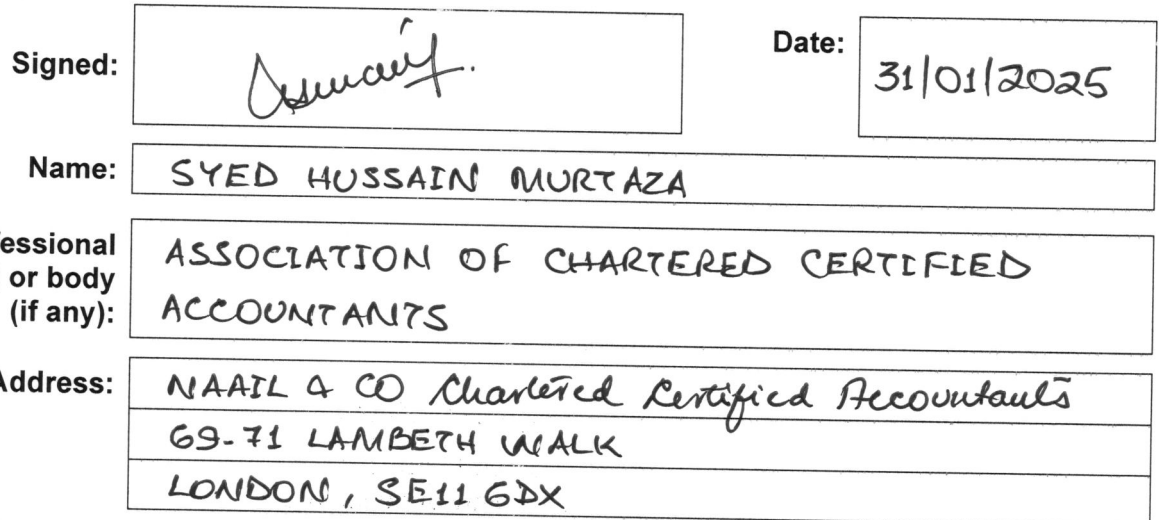 Signed:
Date:
31/01/2025
Name:
SYED HUSSAIN MURTAZA
essional
or body
(if any):
ASSOCIATION OF CHARTERED CERTIFIED
ACCOUNTANTS
Address:
NAAIL & CO Chartered Certified Accountants
69-71 LAMBETH WALK
LONDON, SE11 6DX